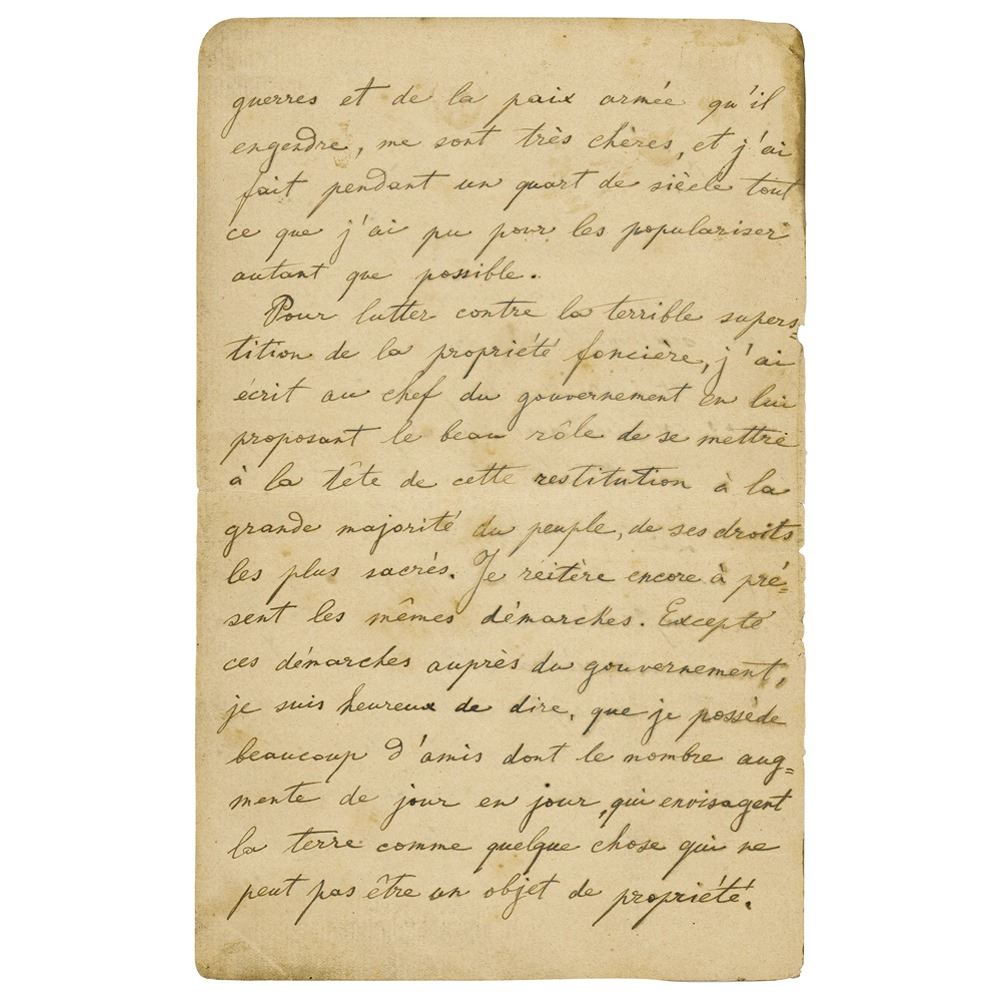 guerres et de la paix armée qu'il
engendre, me sont très chères, et j'ai
fait pendant un quart de siècle tout
ce que j'ai pu pour les populariser
autant que possible.
Pour lutter contre la terrible supers=
tition de la propriété foncière, j'ai
écrit au chef du gouvernement en lui
proposant le beau rôle de se mettre
à la tête de cette restitution à la
grande majorité du peuple, de ses droits
les plus sacrés. Je réitère encore à pré=
sent les mêmes démarches. Excepté
ces démarches auprès du gouvernement,
je suis heureux de dire, que je possède
beaucoup d'amis dont le nombre aug=
mente de jour en jour, qui envisagent
la terre comme quelque chose qui ne
peut pas être un objet de propriété.